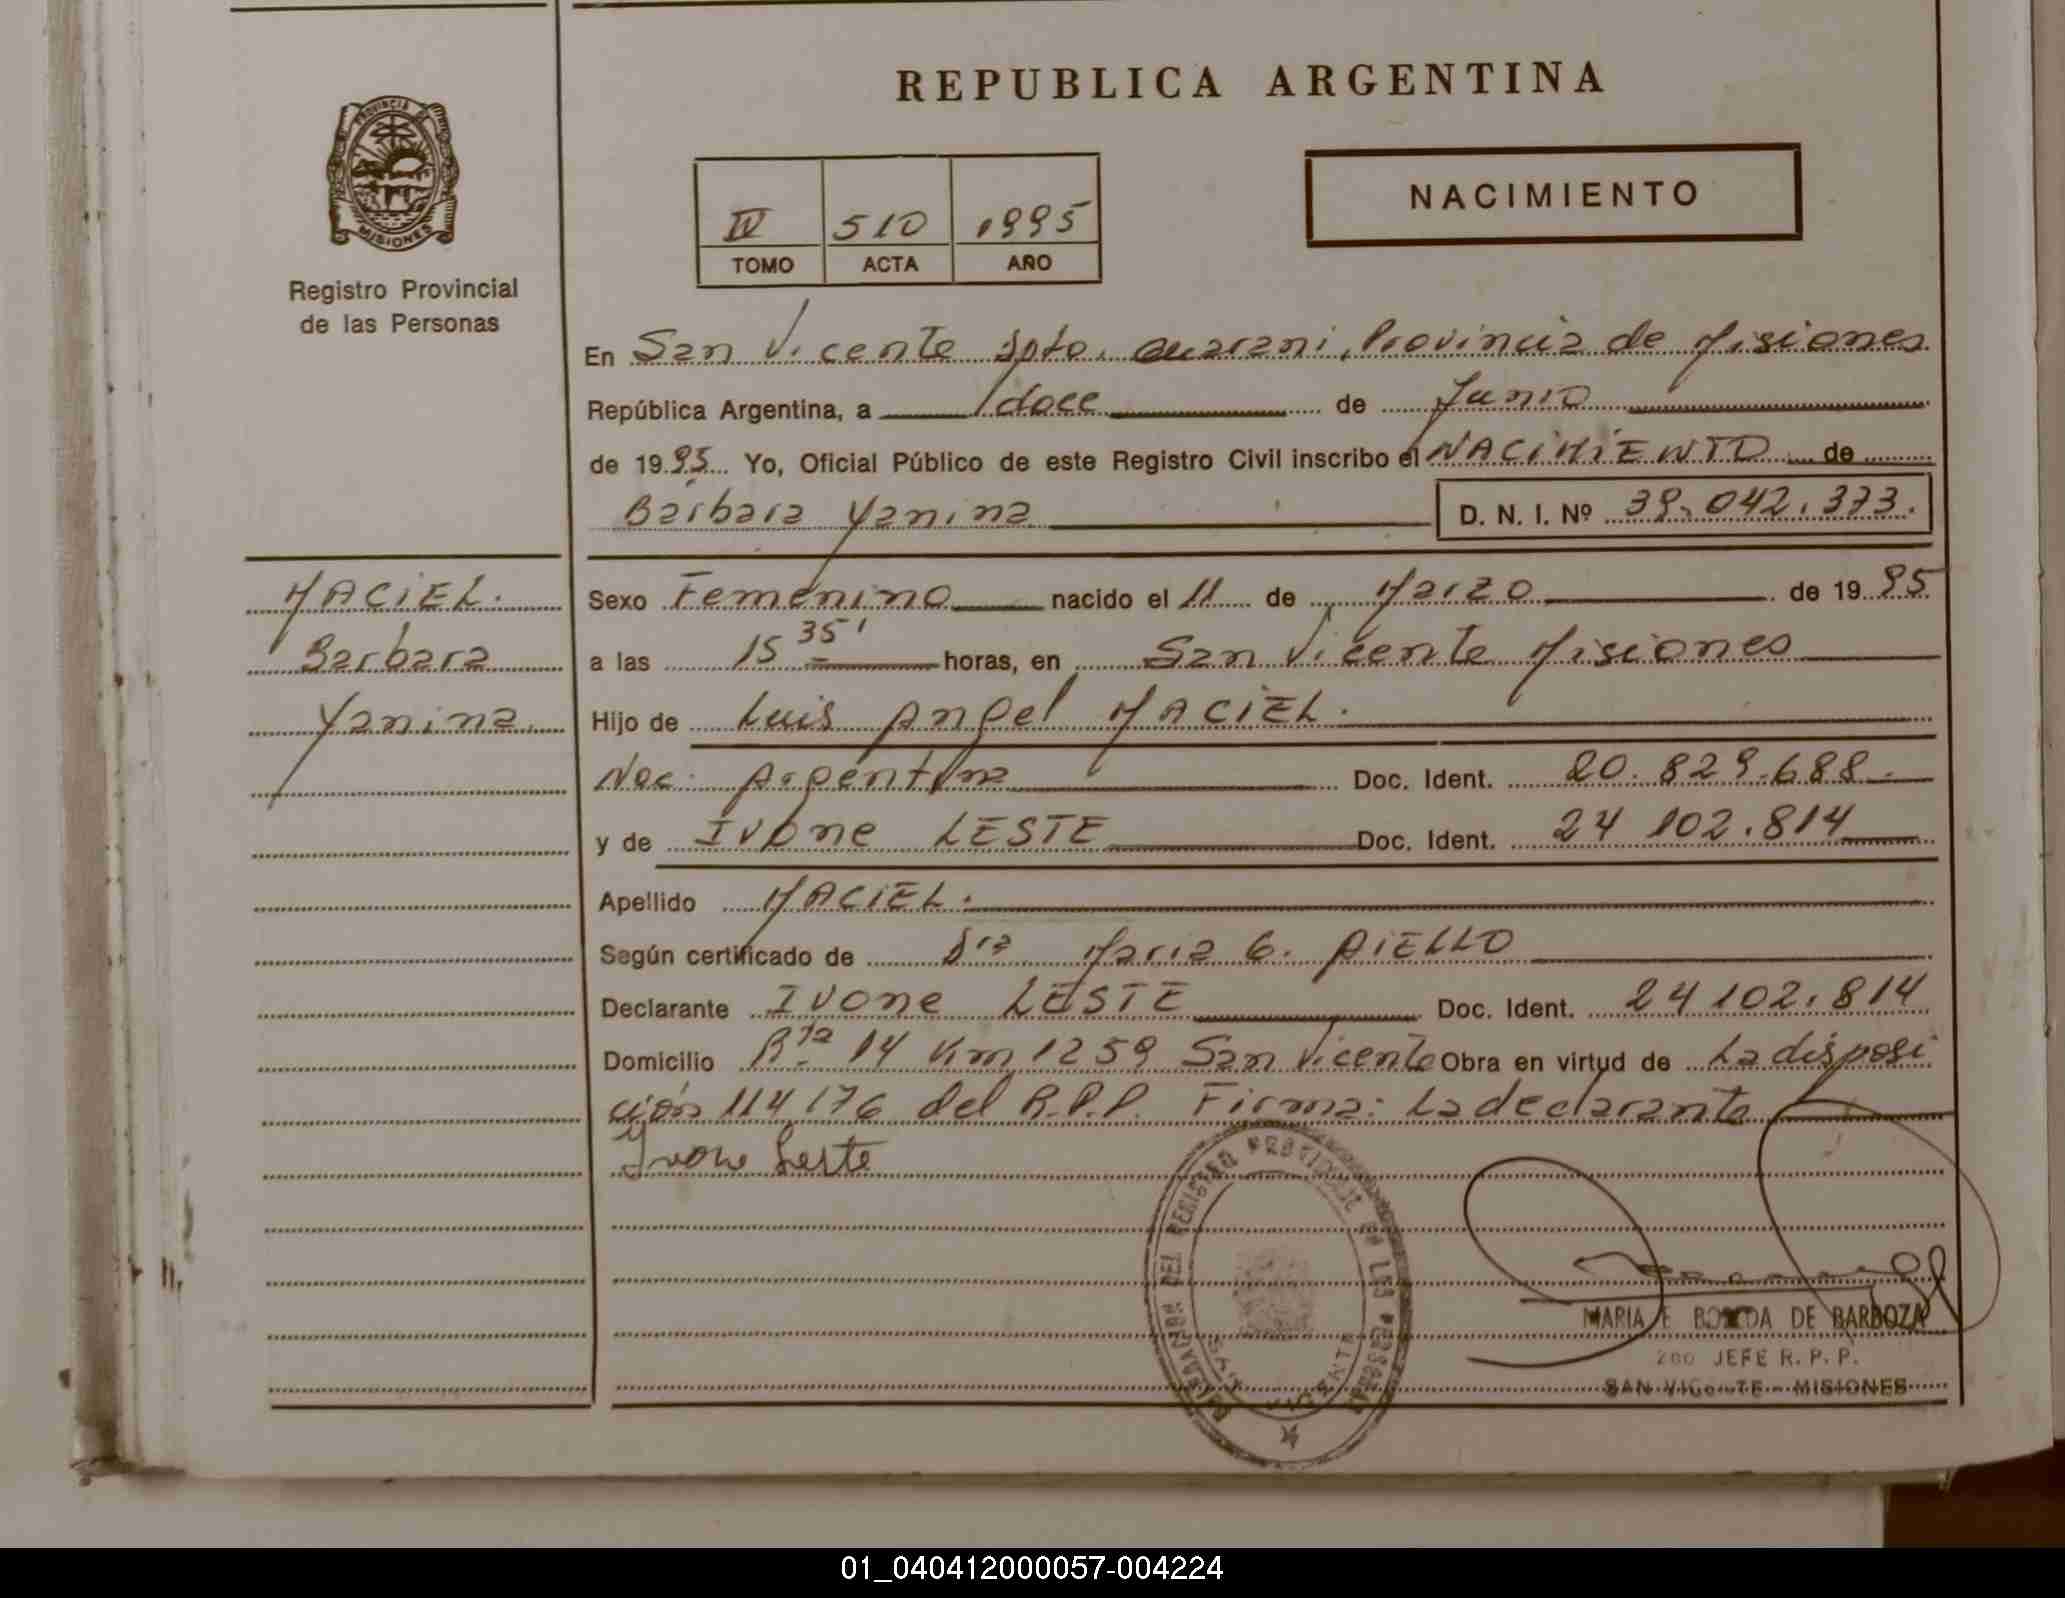 REPUBLICA ARGENTINA
PROVINCIA DE
MISIONES
Registro Provincial
de las Personas
IV 510 1995
TOMO ACTA AÑO
NACIMIENTO
En San Vicente Dpto. Guarani, Provincia de Misiones
República Argentina, a doce de Junio
de 1995 Yo, Oficial Público de este Registro Civil inscribo el NACIMIENTO de
Bárbara Yanina D. N. I. Nº 39.042.373.
MACIEL.
Barbara
Yanina.
Sexo Femenino nacido el 11 de Marzo de 1995
a las 15 35' horas, en San Vicente Misiones
Hijo de Luis Angel MACIEL.
Nac. Argentina Doc. Ident. 20.829.688.
y de Ivone LESTE Doc. Ident. 24 102.814
Apellido MACIEL.
Según certificado de Dra Maria G. AIELLO
Declarante Ivone LESTE Doc. Ident. 24 102.814
Domicilio Rta 14 Km 1259 San Vicente Obra en virtud de La disposi
ción 114/76 del R.P.P. Firma: La declarante
Ivone Leste
DEL REGISTRO PROVINCIAL DE LAS PERSONAS
SAN VICENTE
MISIONES
MARIA E DE BARBOZA
2do JEFE R. P. P.
SAN VICENTE - MISIONES
01_040412000057-004224